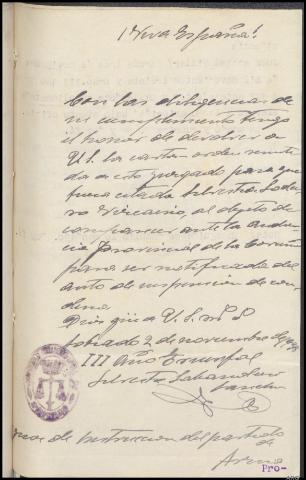 ¡Viva España!
Con las diligencias de
su cumplimiento tengo
el honor de devolver a
V.S. la carta orden remiti
da a este juzgado para que
fuera citado Silvestre
Vizcaino, al objeto de
comparecer ante la Audien
cia provincial de la Coruña
para ser notificado del
auto de suspensión de con
dena
Dios gûe a V.S. m. a
2 de noviembre de 1939
III Año Triunfal
Silvestre
Sr juez de Instruccion del partido de
Arzua
Pro-